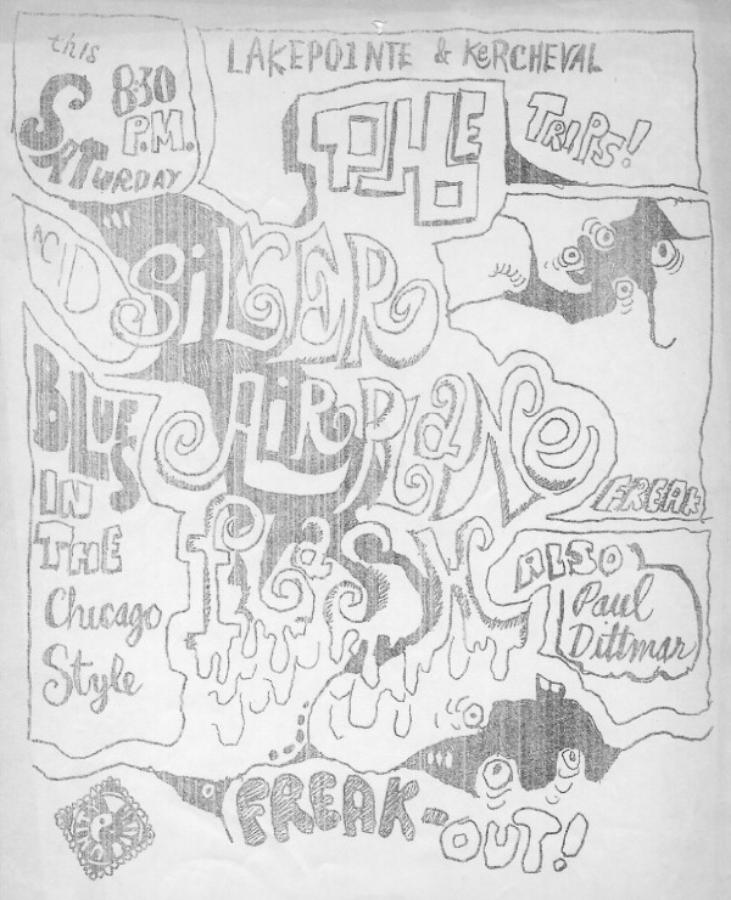 this
8:30
P.M.
SATURDAY
LAKEPOINTE & KeRCHEVAL
THE
TRIPS!
ACID
SiLVER
AiRPLANe
flaSH
FREAK
BLUES
IN
THE
Chicago
Style
ALSO
Paul
Dittmar
FREAK-
OUT!